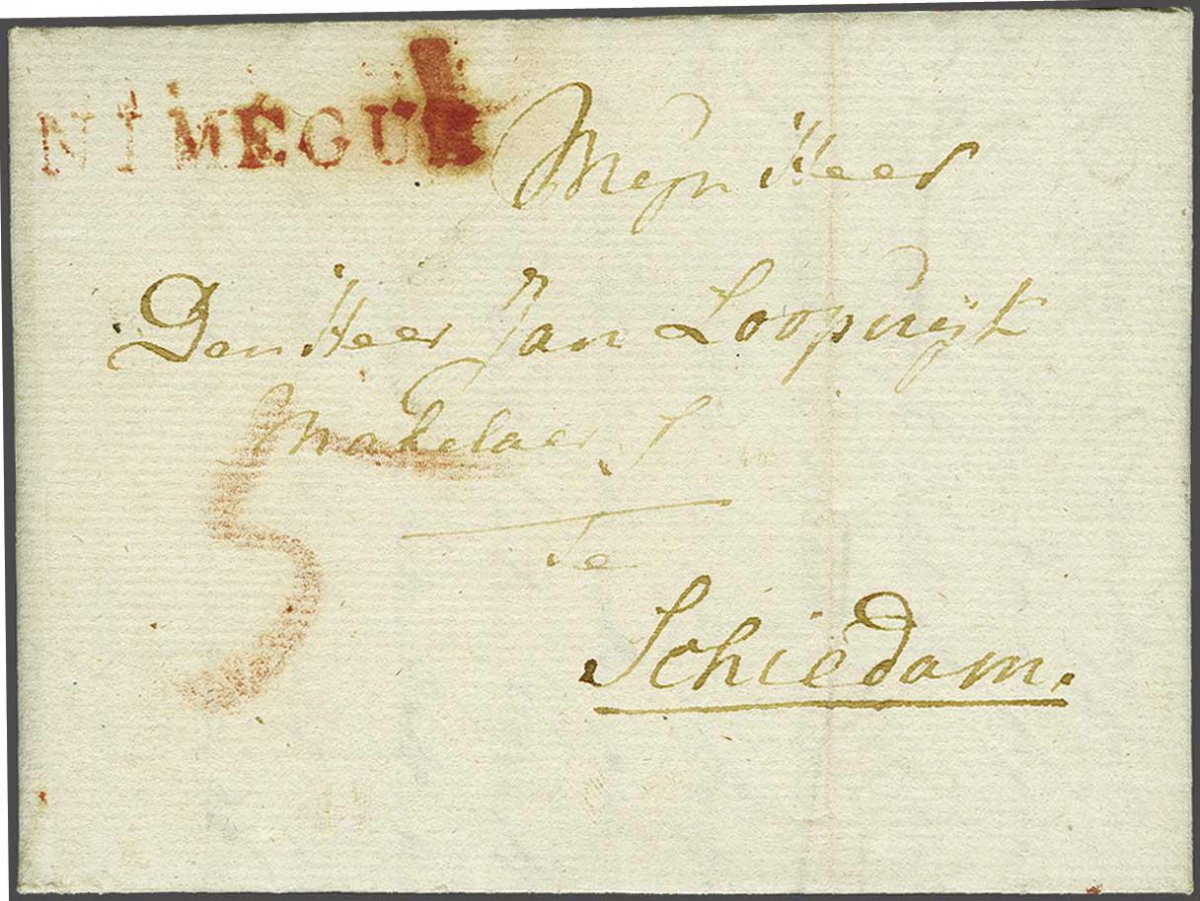 NIMEGUE
Mijn Heer
Den Heer Jan Loopuijt
Makelaer
5
Te
Schiedam.